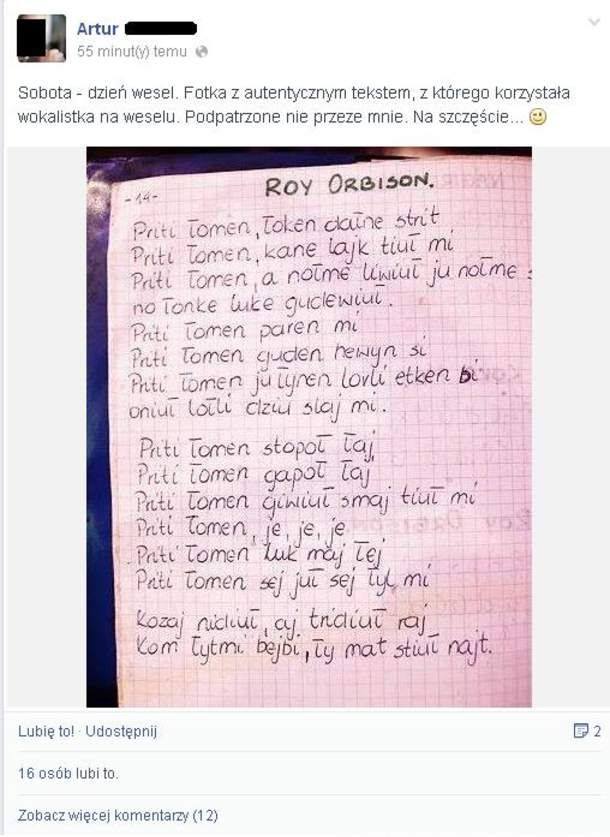 Artur
55 minut(y) temu
Sobota - dzień wesel. Fotka z autentycznym tekstem, z którego korzystała
wokalistka na weselu. Podpatrzone nie przeze mnie. Na szczęście...
-14-
ROY ORBISON.
Priti łomen, łoken dałne strit
Priti łomen, kane lajk tiuł mi
Priti łomen, a notme liwiuł ju notme
no łonke luke gudewiuł.
Priti łomen paren mi
Priti łomen guden hewyn si
Priti łomen ju łynen lovli etken bi
oniuł lotli dziu slaj mi.
Priti łomen stopoł łaj
Priti łomen gapoł łaj
Priti łomen giwiuł smaj tiuł mi
Priti łomen, je, je, je
Priti łomen luk maj łej
Priti łomen sej juł sej łyl mi
Kozaj nidiuł, aj tridiuł raj
Kom łytmi bejbi, ły mat stiuł najt.
Lubię to! · Udostępnij
2
16 osób lubi to.
Zobacz więcej komentarzy (12)